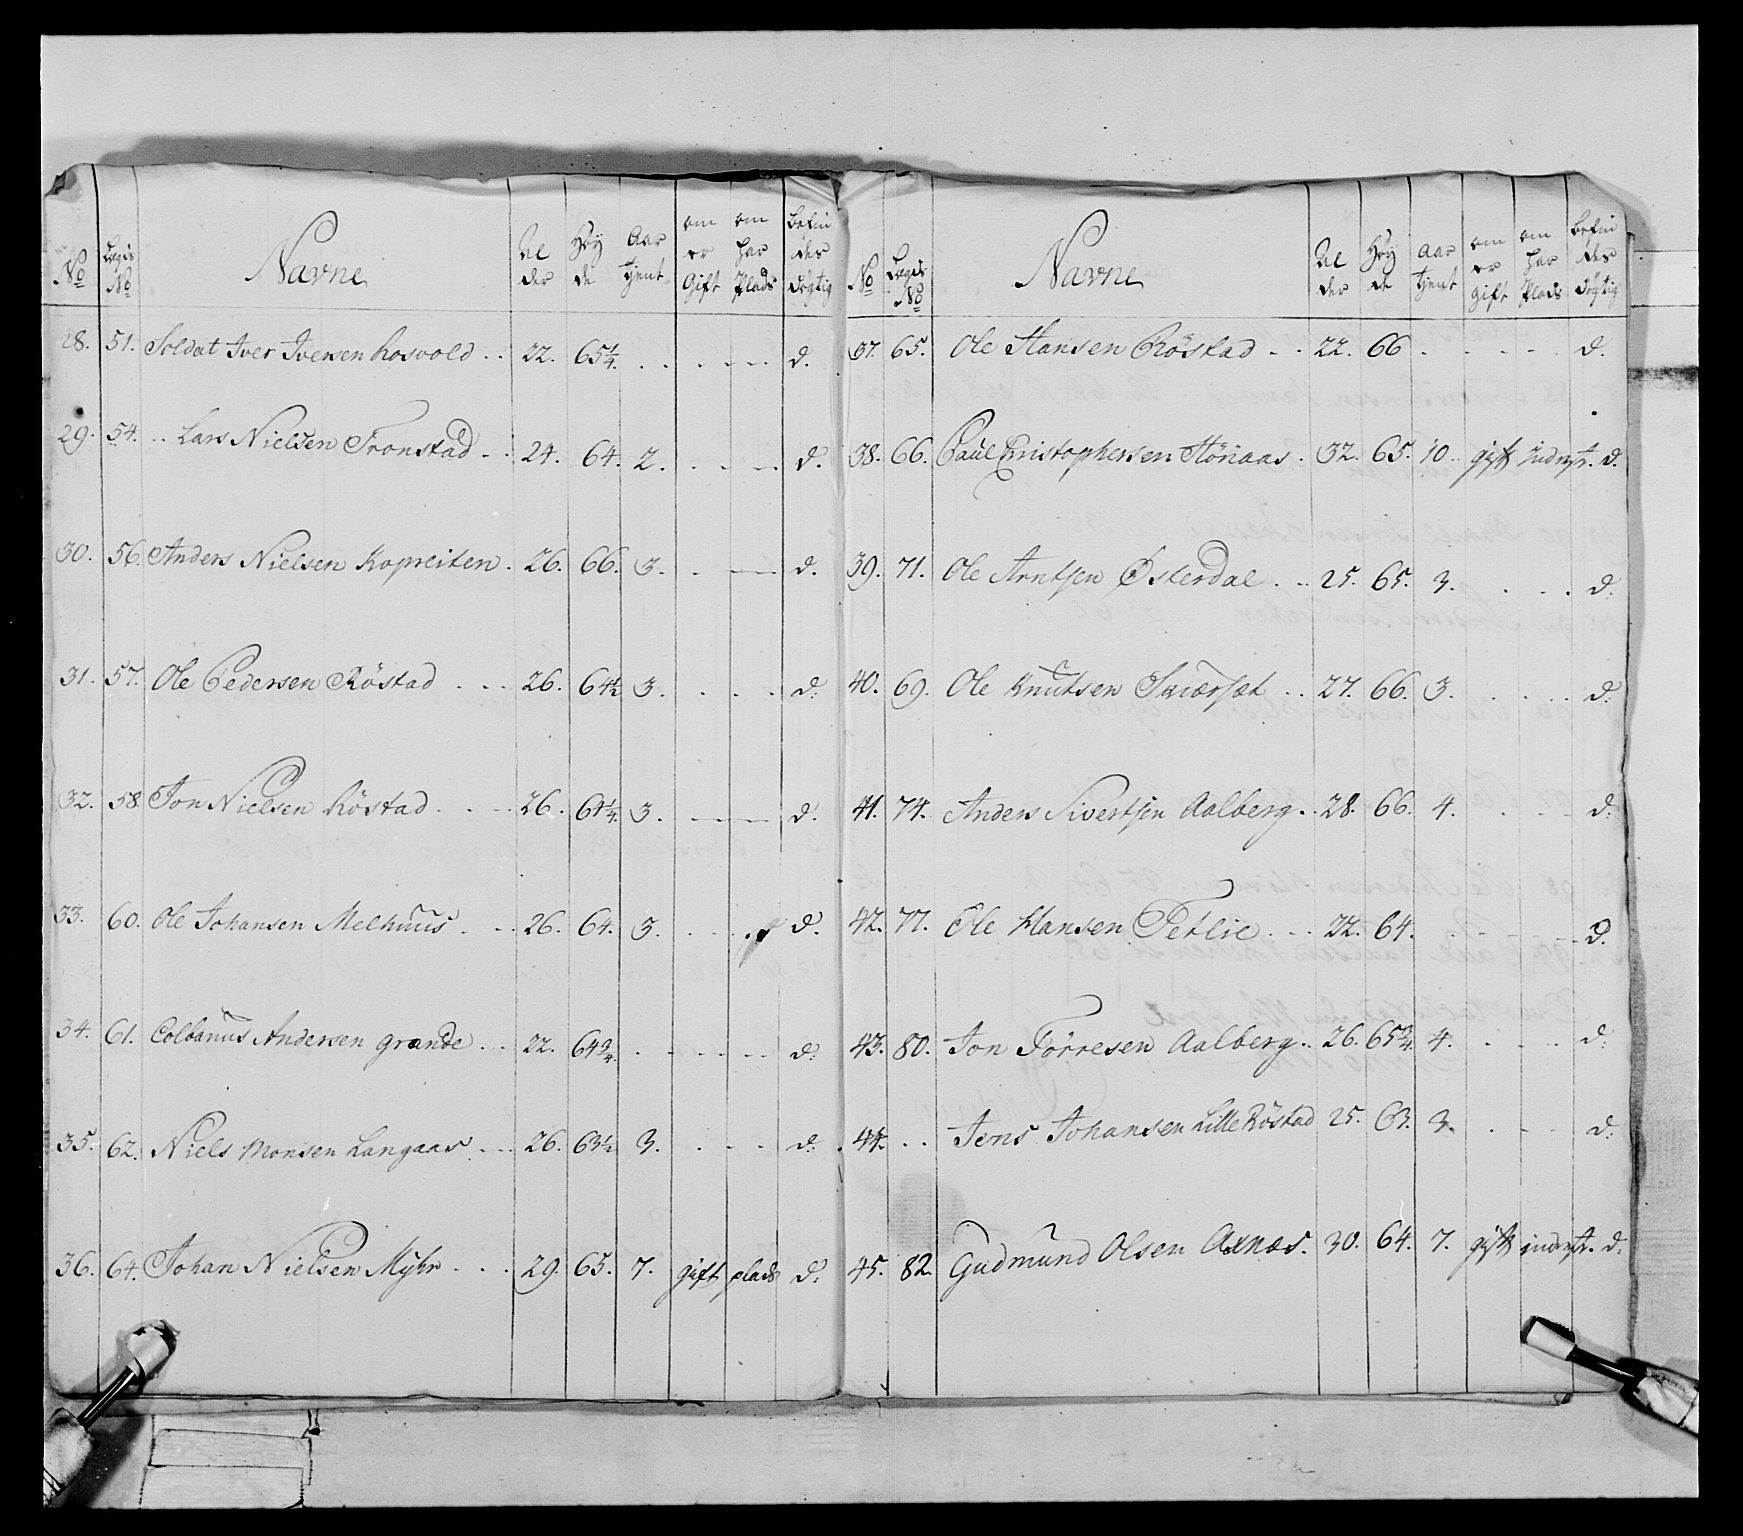 No Lægds No Navne Al der Høy de Aar tjent om er Gift om har Plads befin des dygtig
28. 51. Soldat Iver Iversen Rosvold . . 22. 65¼. . . . . . d.
29. 54. .. Lars Nielsen Tronstad . . 24. 64. 2. . . . d.
30. 56. Anders Nielsen Kopreiten . 26. 66. 3. . . d.
31. 57. Ole Pedersen Röstad . . . 26. 64½ 3. . . . d.
32. 58. Jon Nielsen Röstad . . . 26. 64¼. 3. . . . d.
33. 60. Ole Johansen Melhuus . . . 26. 64. 3. . . . d.
34. 61. Colbanus Andersen grande . . 22. 64¾. . . . . d.
35. 62. Niels Monsen Langaas . . . 26. 63½ 3. . . . d.
36. 64. Johan Nielsen Myhr . . . 29. 65. 7. gift plads d.
No Lægds No Navne Al der Høy de Aar tjent om er gift om har Plads befin des dögtig
37. 65. Ole Hansen Röstad . . 22. 66 . . . . . d.
38. 66. Paul Christophersen Hönaas . 32. 65. 10. gift inderst. d.
39. 71. Ole Arntsen Østerdal . . 25. 65. 3. . . . d.
40. 69. Ole Knutsen Skiærsæt . . 27. 66. 3. . . . d.
41. 74. Anders Sivertsen Aalberg . . 28. 66. 4. . . . d.
42. 77. Ole Hansen Tetlie . . . 22. 64. . . . . d.
43. 80. Jon Törresen Aalberg . . 26. 65¾. 4. . . . d.
44. . . Jens Johansen Lille Röstad 25. 63. 3. . . . d.
45. 82. Gudmund Olsen Axnæs. 30. 64. 7. gift inderst. d.